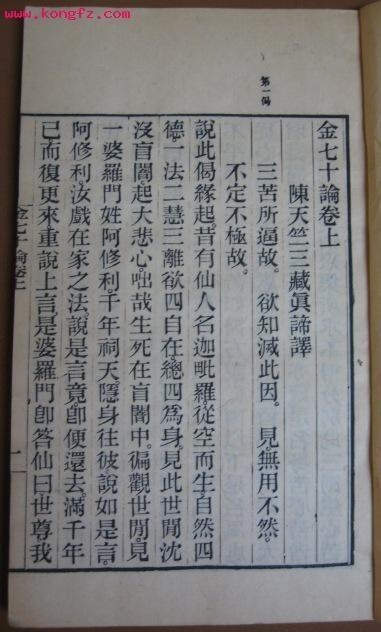 www.kongfz.com
第一偈
金七十論卷上
陳天竺三藏眞諦譯
三苦所逼故。欲知滅此因。見無用不然。
不定不極故。
說此偈緣起。昔有仙人名迦毗羅。從空而生。自然四
德。一法二慧三離欲四自在。總四爲身。見此世閒沈
沒盲闇。起大悲心。咄哉生死在盲闇中。徧觀世閒。見
一婆羅門姓阿修利。千年祠天。隱身往彼。說如是言。
阿修利。汝戲在家之法。說是言竟。卽便還去。滿千年
已而復更來。重說上言。是婆羅門卽答仙曰。世尊。我
金七十論卷上
一